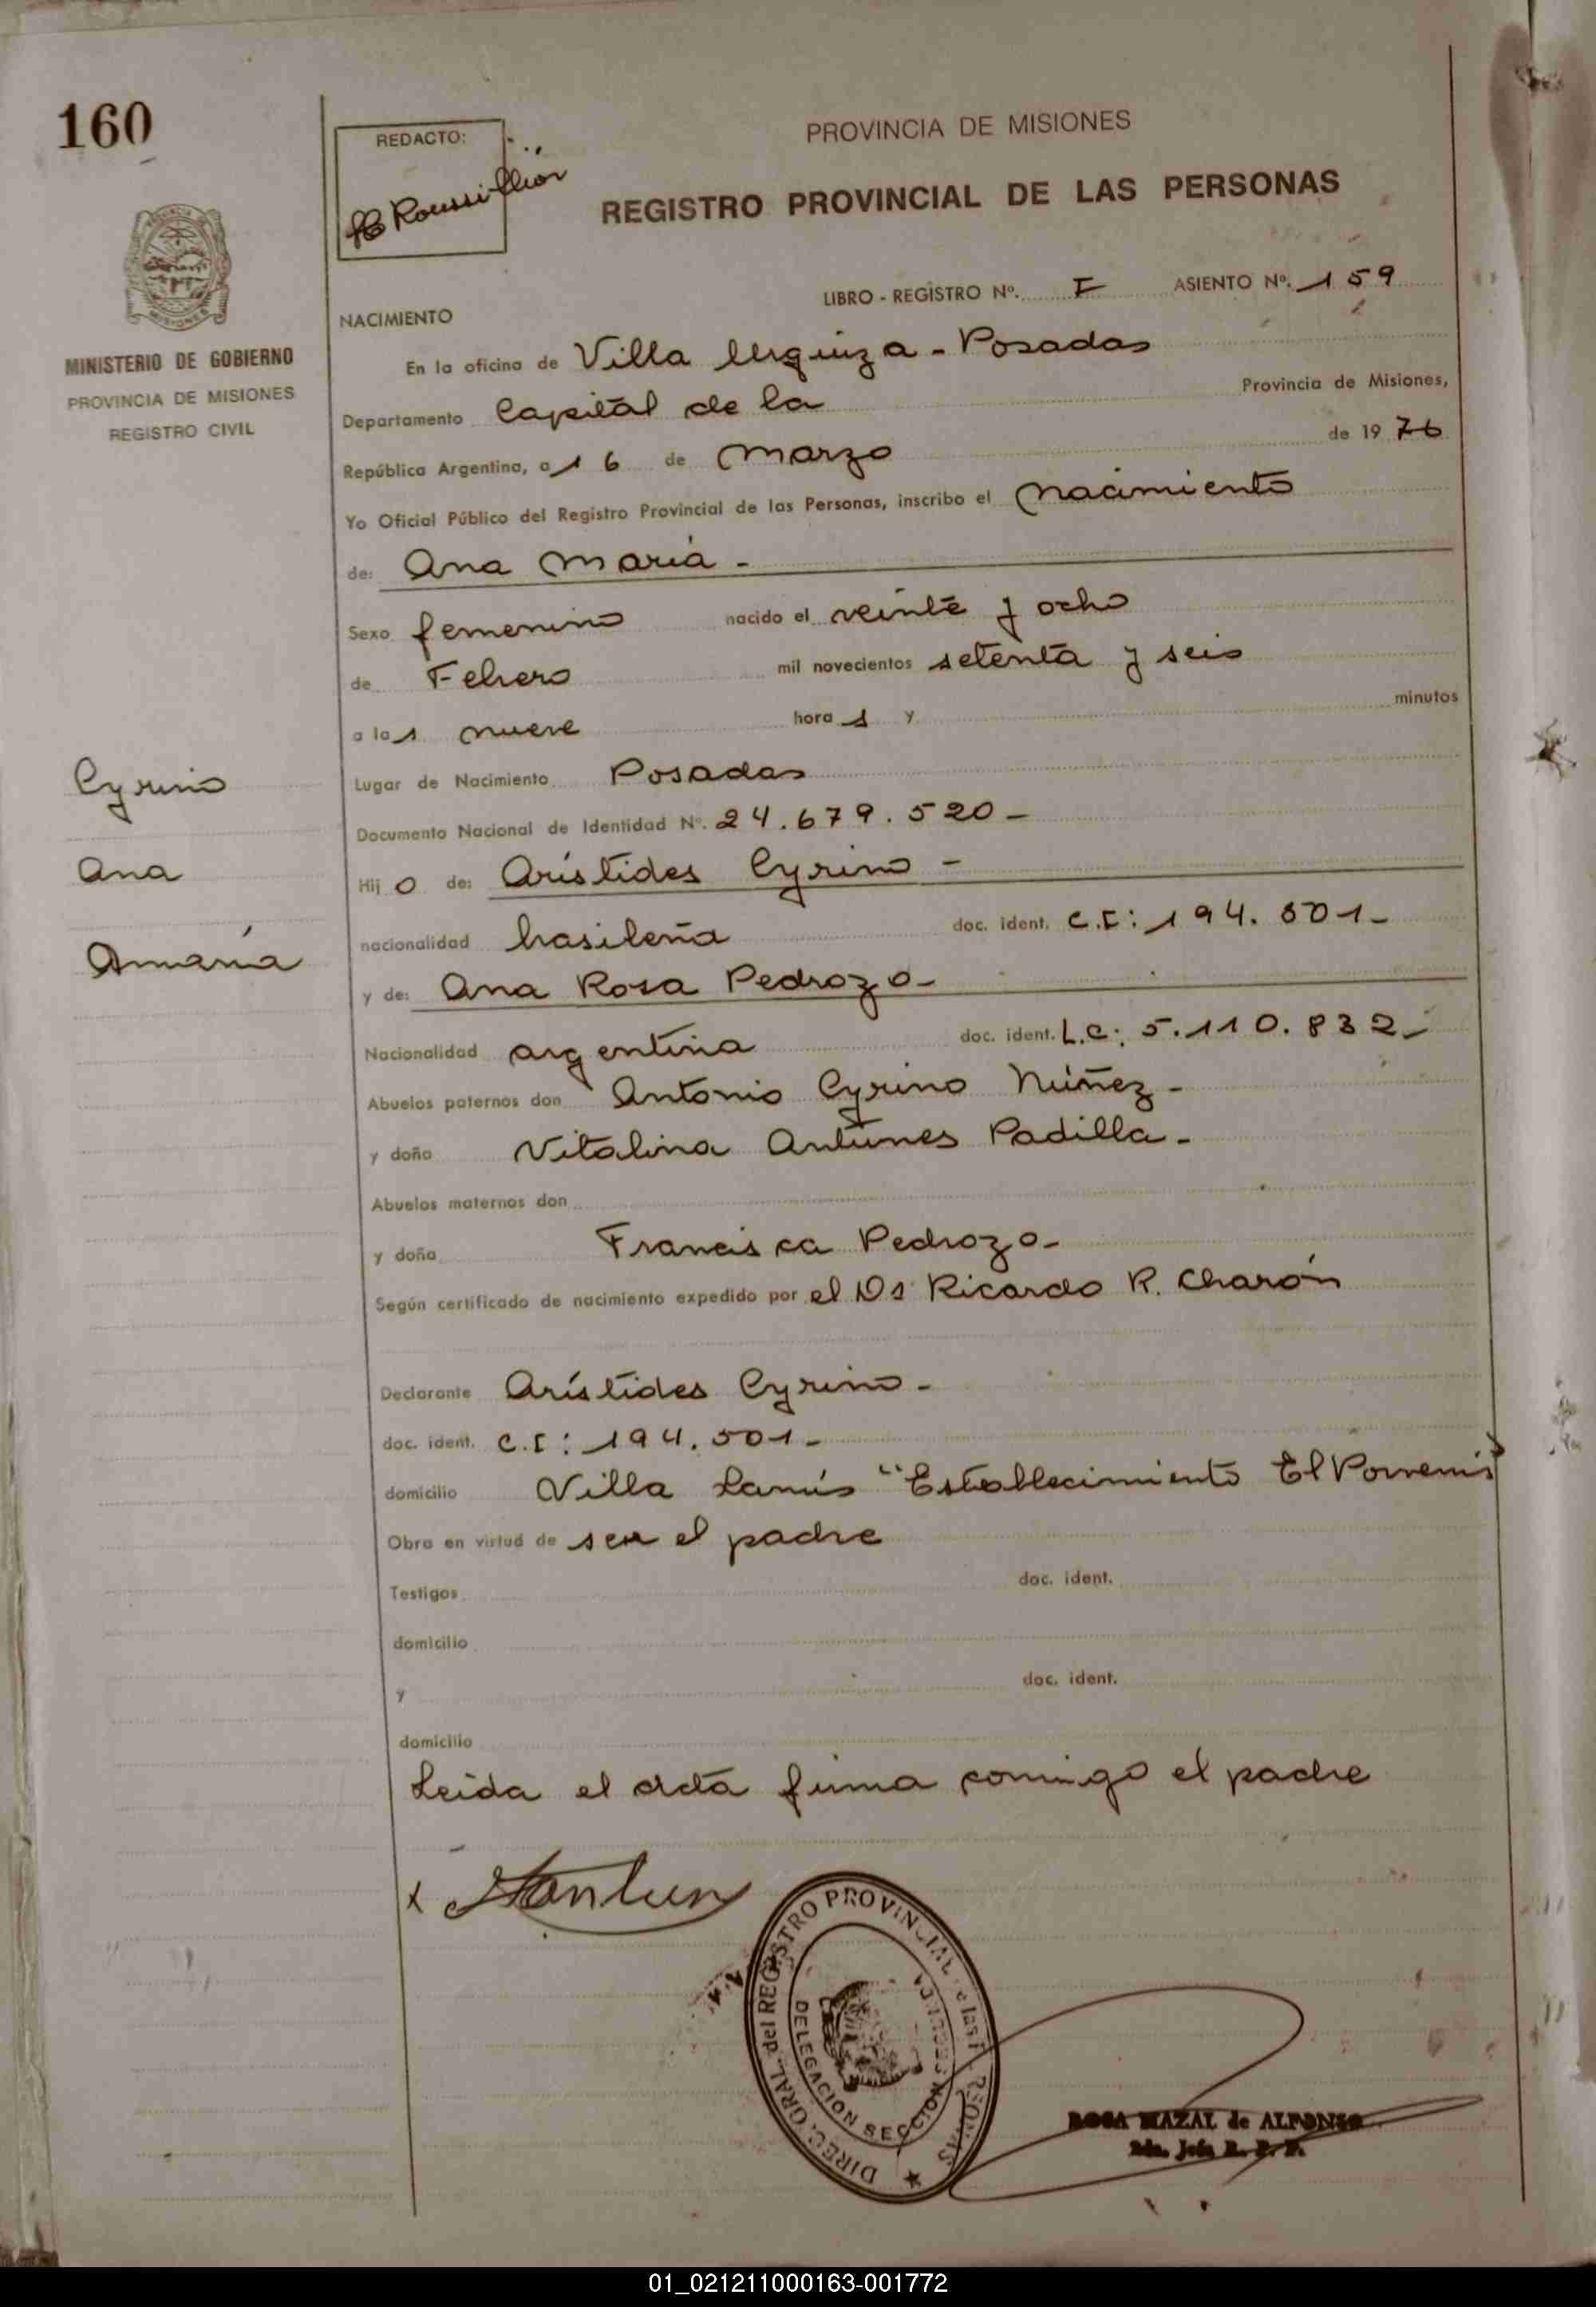 160
REDACTO:
Roussillion
PROVINCIA DE MISIONES
REGISTRO PROVINCIAL DE LAS PERSONAS
MISIONES
MINISTERIO DE GOBIERNO
PROVINCIA DE MISIONES
REGISTRO CIVIL
LIBRO - REGISTRO Nº. I ASIENTO Nº. 159
NACIMIENTO
En la oficina de Villa Urquiza - Posadas
Departamento Capital de la Provincia de Misiones,
República Argentina, a 16 de Marzo de 19 76
Yo Oficial Público del Registro Provincial de las Personas, inscribo el Nacimiento
de: Ana María -
Sexo femenino nacido el veinte y ocho
de Febrero mil novecientos setenta y seis
a las nueve hora s y minutos
Lugar de Nacimiento Posadas
Documento Nacional de Identidad Nº. 24.679.520 -
Hij o de: Arístides Cyrino -
nacionalidad brasileña doc. ident. C.I: 194.501 -
y de: Ana Rosa Pedrozo -
Nacionalidad argentina doc. ident. L.C: 5.110.832 -
Abuelos paternos don Antonio Cyrino Núñez -
y doña Vitalina Antunes Padilla -
Abuelos maternos don
y doña Francisca Pedrozo -
Según certificado de nacimiento expedido por el Dr Ricardo R. Charón
Declarante Arístides Cyrino -
doc. ident. C.I: 194.501 -
domicilio Villa Lanús "Establecimiento El Porvenir"
Obra en virtud de ser el padre
Testigos doc. ident.
domicilio
y doc. ident.
domicilio
Leída el acta firma comigo el padre
Cyrino
Ana
María
x
DIREC. GRAL. del REGISTRO PROVINCIAL de las PERSONAS
DELEGACION SECCION SEGUNDA
ROSA MAZAL de ALFONSO
2da. Jefa R. P. P.
01_021211000163-001772